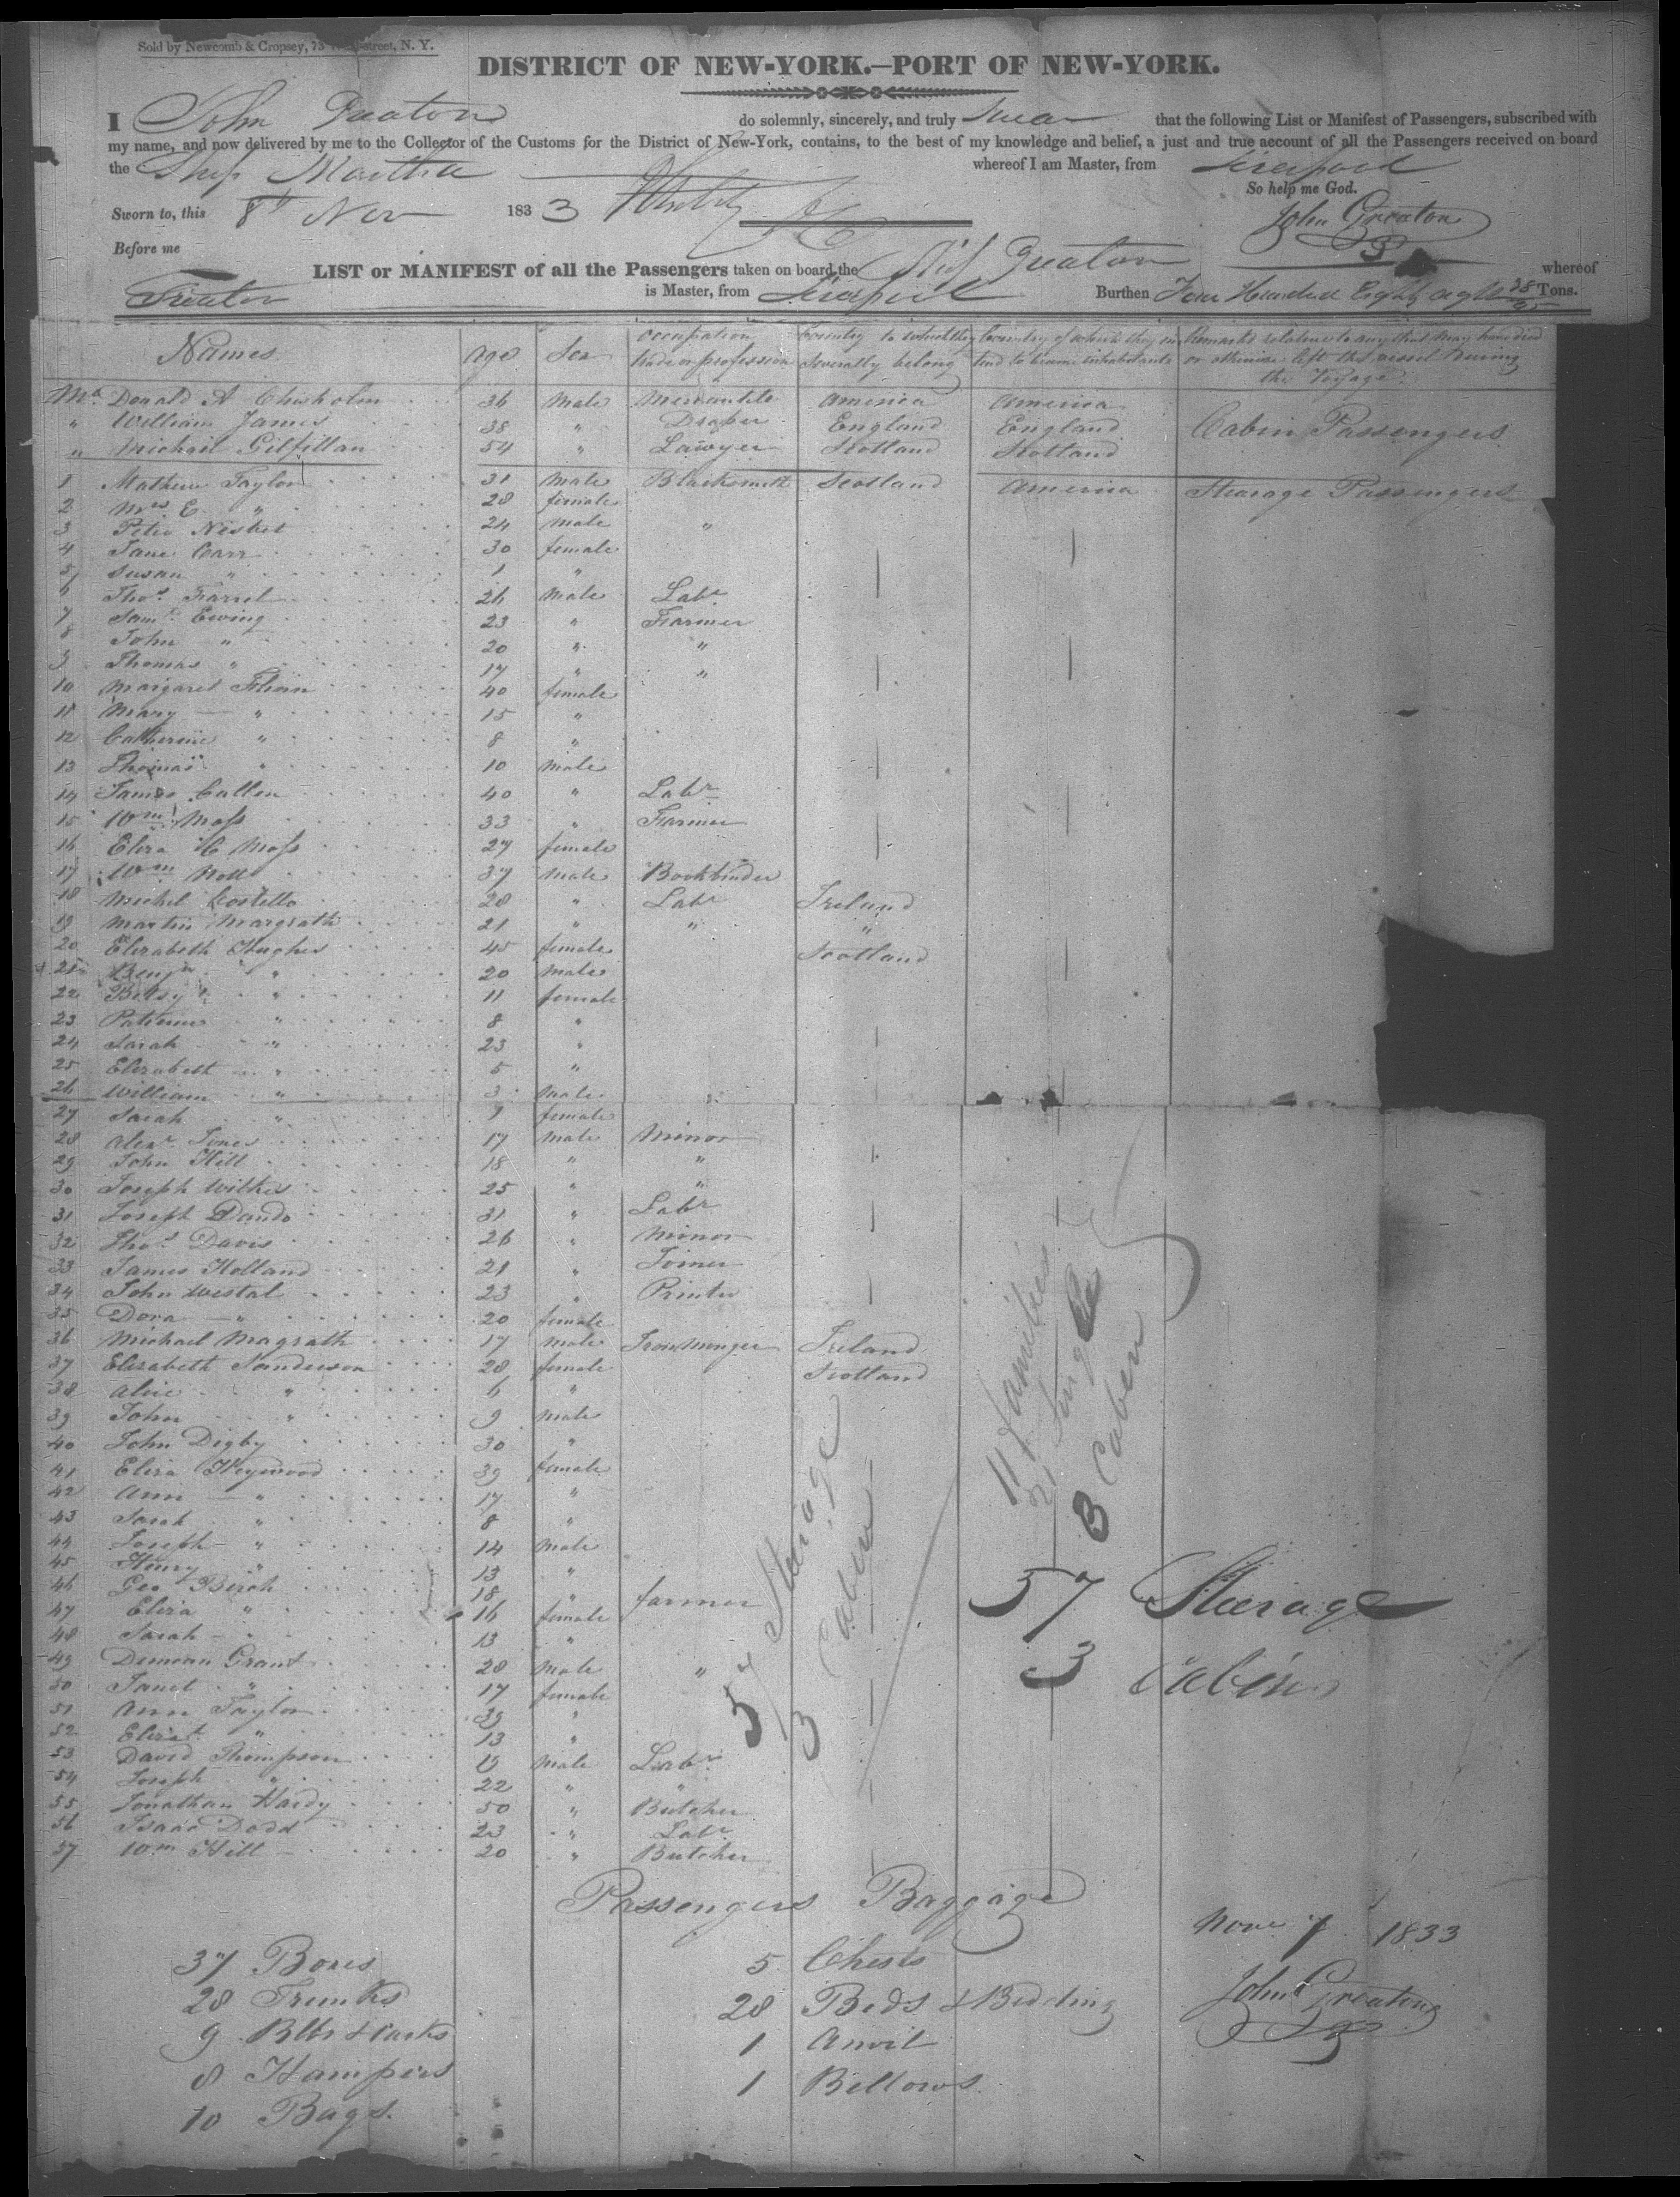 Sold by Newcomb & Cropsey, 73 Wall-street, N. Y.
DISTRICT OF NEW-YORK.—PORT OF NEW-YORK.
I John Greaton do solemnly, sincerely, and truly swear that the following List or Manifest of Passengers, subscribed with
my name, and now delivered by me to the Collector of the Customs for the District of New-York, contains, to the best of my knowledge and belief, a just and true account of all the Passengers received on board
the Ship Martha whereof I am Master, from Liverpool
So help me God.
Sworn to, this 8th Nov 1833
John Greaton
Before me
LIST or MANIFEST of all the Passengers taken on board the Ship Greaton whereof
Greaton is Master, from Liverpool Burthen Four Hundred Eighty eight 28/95 Tons.
Names Age Sex Occupation trade or profession Country to which they severally belong Country of which they intend to become inhabitants Remarks relative to any that may have died or otherwise left the vessel During the Voyage
Mr. Donald A Chisholm 36 Male Mercantile America America
" William James 38 " Draper England England Cabin Passengers
" Michael Gilfillan 54 " Lawyer Scotland Scotland
1 Mathew Taylor 31 Male Blacksmith Scotland America Stearage Passengers
2 Mrs E " 28 female
3 Peter Nesbet 24 Male "
4 Jane Carr 30 female
5 Susan " 1 "
6 Thos. Farrel 26 Male Labr
7 Saml. Ewing 23 " Farmer
8 John " 20 " "
9 Thomas " 17 " "
10 Margaret 40 female
11 Mary " 15 "
12 Catherine " 8 "
13 Thomas " 10 Male
14 James Callen 40 " Labr
15 Wm Moss 33 " Farmer
16 Eliza C Moss 27 female
17 Wm Noll 37 Male Bookbinder
18 Michel Costello 28 " Labr Ireland
19 Martin Margrath 21 " " "
20 Elizabeth Hughes 45 female Scotland
21 Benjn " 20 Male
22 Betsy " 11 female
23 Patience " 8 "
24 Sarah " 23 "
25 Elizabeth " 5 "
26 William " 3 Male
27 Sarah " 9 female
28 Alexr Jones 17 Male Minor
29 John Hill 18 " "
30 Joseph Wilkes 25 " "
31 Joseph Dando 31 " Labr
32 Thos. Davis 26 " Minor
33 James Holland 21 " Joiner
34 John Westal 23 " Printer
35 Dora " 20 female
36 Michael Magrath 17 Male Ironmonger Ireland
37 Elizabeth Sanderson 28 female Scotland
38 Alice " 6 "
39 John " 9 Male
40 John Digby 30 "
41 Eliza Heywood 39 female
42 Ann " 17 "
43 Sarah " 8 "
44 Joseph " 14 Male
45 Henry " 13 "
46 Geo Birch 18 " farmer
47 Eliza " 16 female
48 Sarah " 13 "
49 Duncan Grant 28 Male "
50 Janet " 17 female
51 Ann Taylor 39 "
52 Elizat. " 13 "
53 David Thompson Male Labr
54 Joseph " 22 " "
55 Jonathan Hardy 50 " Butcher
56 Isaac Dodd 23 " Labr
57 Wm Hill 20 " Butcher
57 Stearage
3 Cabin
11 families
31 Single
3 Caben
57 Stearage
3 Cabin
Passengers Baggage
Nove 7 1833
John Greaton
37 Boxes 5 Chests
28 Trunks 28 Beds & Bedding
9 Bbls & Casks 1 Anvil
8 Hampers 1 Bellows
10 Bags.